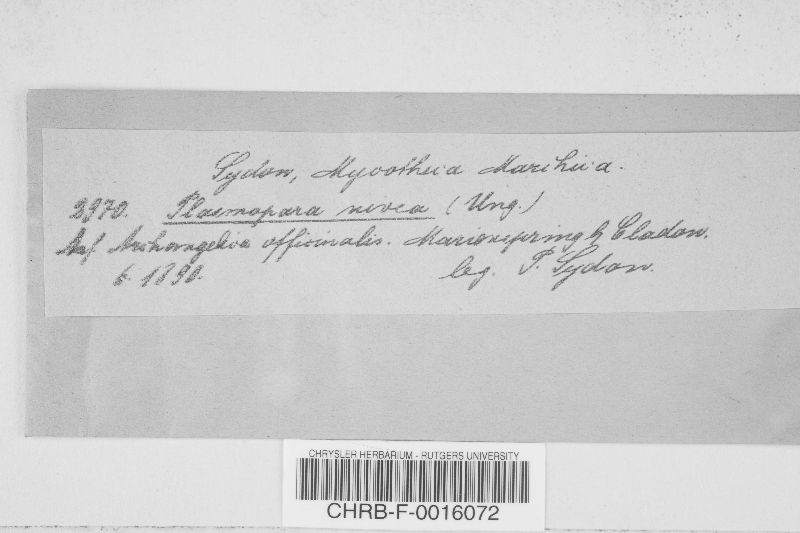 Sydow, Mycotheca Marchica.
2970. Plasmopara nivea (Ung.)
Auf Archangelica officinalis. Marienspring b. Cladow.
6. 1890. leg. P. Sydow.
CHRYSLER HERBARIUM - RUTGERS UNIVERSITY
CHRB-F-0016072